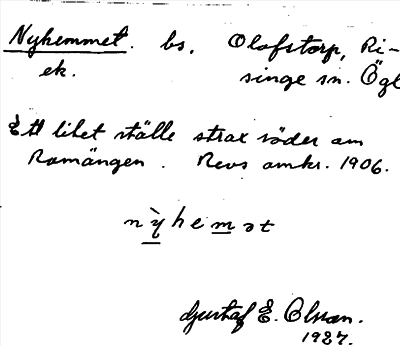 Nyhemmet. bs. Olofstorp, Ri-
ek. singe sn. Ögl
Ett litet ställe strax söder om
Ramängen. Revs omkr. 1906.
nỳhemət
Gustaf E. Olsson.
1927.